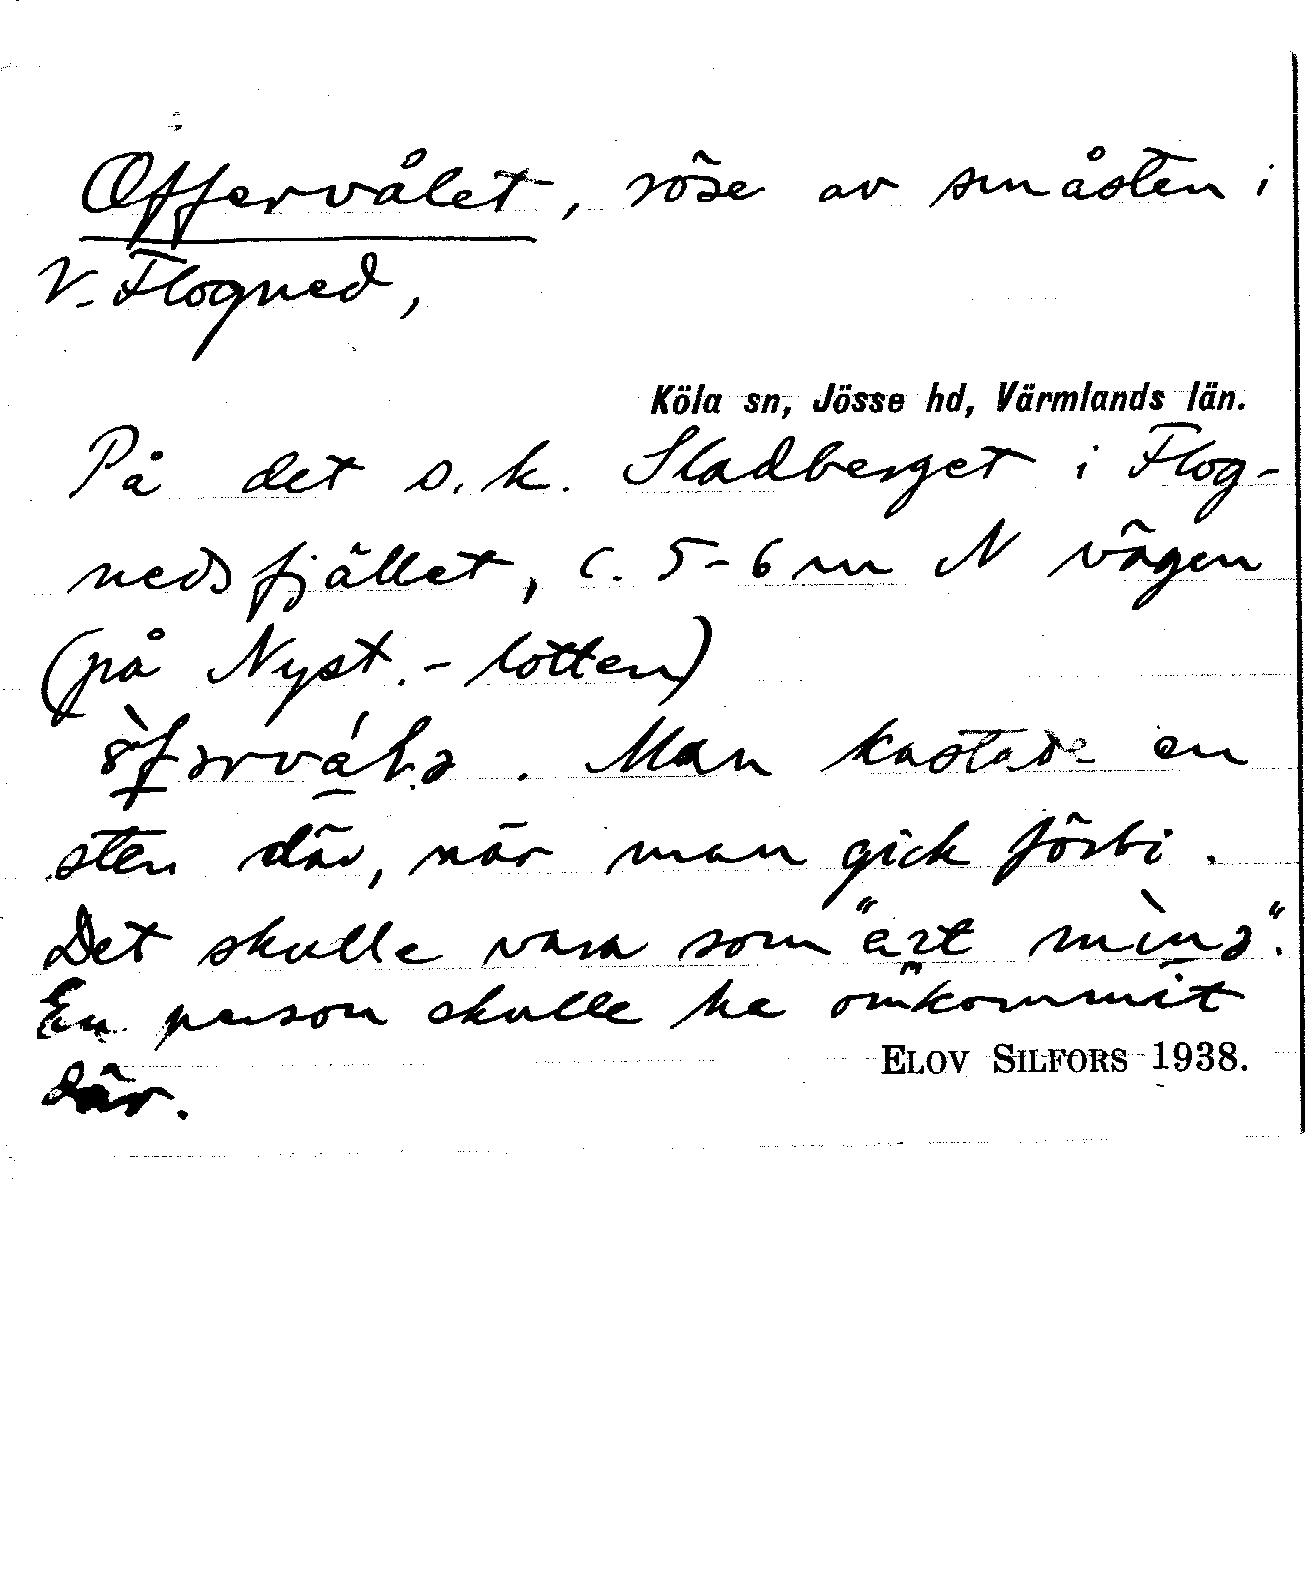 Offervålet, röse av småsten i
V. Flogned,
Köla sn, Jösse hd, Värmlands län.
På det s.k. Sladberget i Flog-
nedsfjället, c. 5-6 m N vägen
(på Nyst.-lotten)
Man kastade en
sten där, när man gick förbi.
Det skulle vara som
En person skulle ha omkommit
där.
ELOV SILFORS 1938.